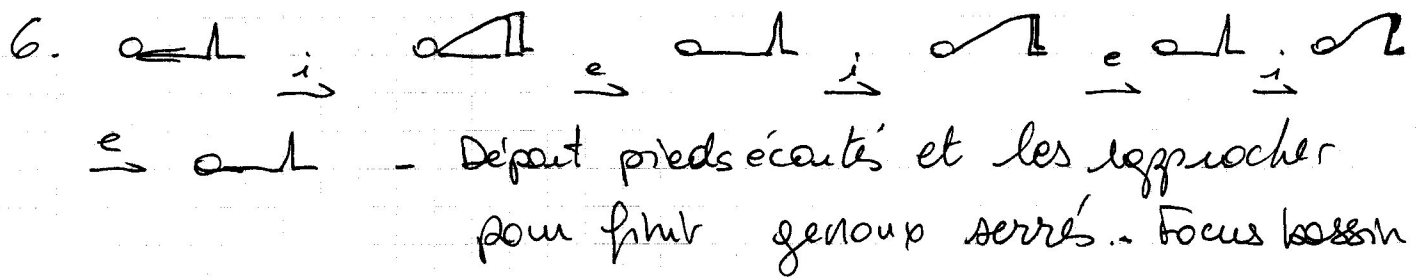 6. i → e → i → e → i →
e → - Départ pieds écartés et les rapprocher
pour finir genoux serrés.. Focus bassin